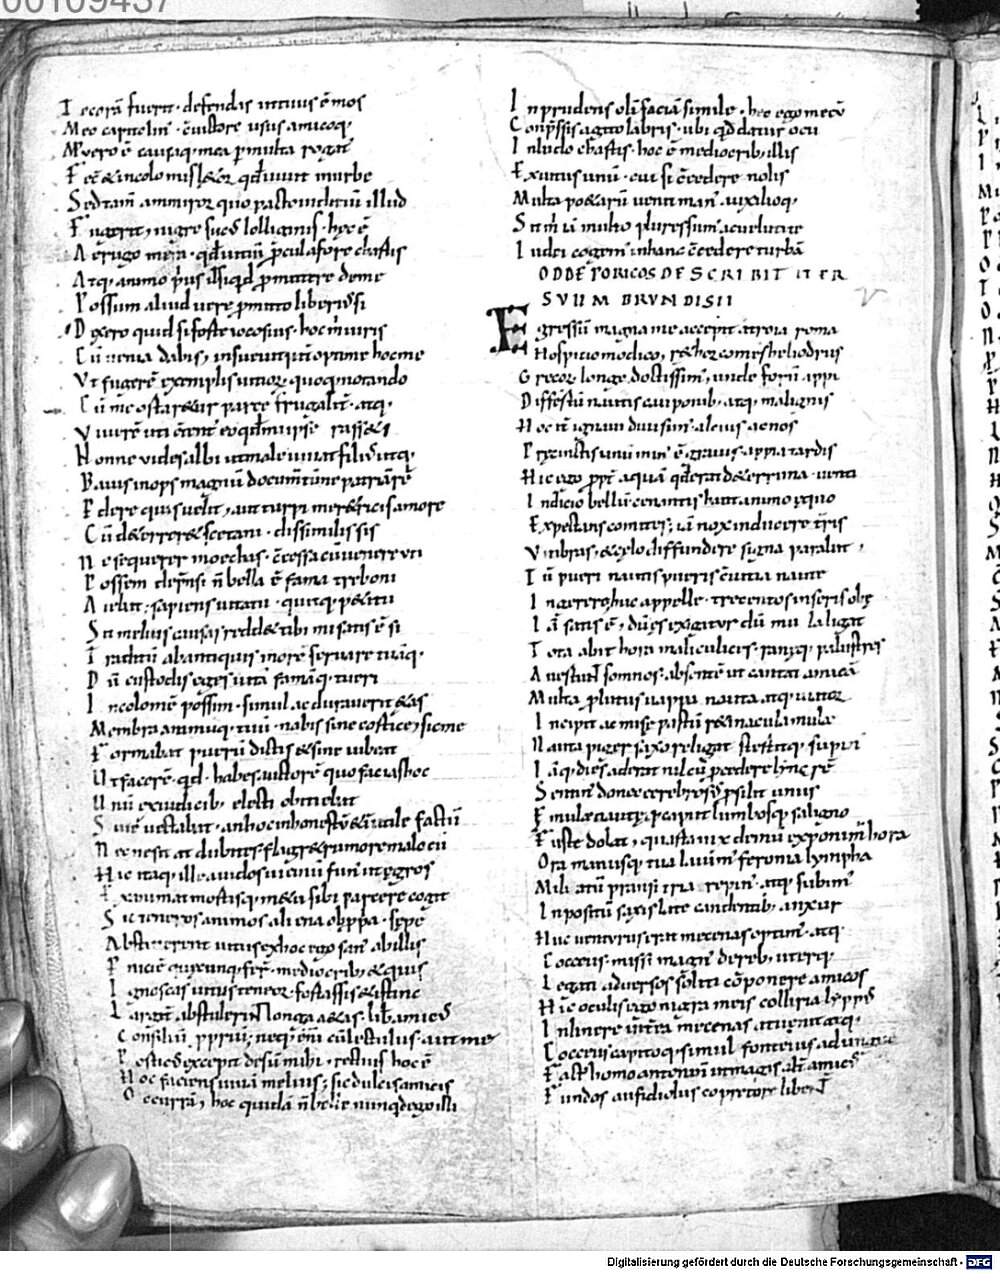 00109437
I ecorā fuerit· defendas ut tuus ē mos
Meo capitolin· cūictore usus amicoq;
A puero ē causaq; mea pmulta rogat
Fec̄ & incolomis l&or qđ uiuit inurbe
Sed tam̄ ammiror quo pacto iudiciū illud
Fugerit, nigre sucus lolliginis· hęc ē
Aerugo mera· qđ uitiū pcul afore chartis
Atq; animo prius
Possum aliud uere pmitto liberius si
Dixero quid si forte iocosius· hoc m̄ iuris
Cū uenia dabis, insueuit pat̄ optime hocme
Vt fugerē exemplis uitior, quoq; notando
Cū me ortar&ur parce frugalit̄· atq;
Viuerē uti ctent̄
Nonne uides albi ut male uiuat filius· utq;
Baius inops magnū documtū ne patriā rē
Pdere quis uelit, aut turpi mer&ricis amore
Cū det̄rer& sc&ani· dissimilis sis
Ne sequerer moechas· c̄cessa cū uenere uti
Possem dephnsi n̄ bella ē fama treboni
Aiebat; sapiens uitatu· quitq; p&itu
Sit melius causas redd& tibi mi satis ē si
Traditū abantiquis morē seruare tuāq;
Dū custodis eges uitā famāq; tueri
Incolomē possim· simul ac durauerit &as
Membra animuq; tuū· nabis sine cortice, sic me
Formabat puerū dictis & siue iubebat
Ut facerē· qđ· habes auctorē quo facias hoc
Unū exiudicib; electis obiciebat
Siue uetabat· an hoc inhonestū & inutile factū
Necnesit at dubites flagr& rumore malo cū
Hic itaq; ille auidos uicinū fun̄ ut ęgros
Exanimat mortisq; m&u sibi parcere cogit
Sic teneros animos aliena obpbria· sępe
Absterrent uitiis ex hoc ego san̄ abillis
Pnicie quęcunq; fer̄· mediocrib; & quis
Ignoscas uitiis teneor· fortassis & istinc
Largit̄ abstulerit longa &as· lib̄ amicus
Consiliū pprium; neq; enī cū lectulus· aut me
Porticus excepit desū mihi· rectius hoc ē
Hoc faciens uiuā melius; sic dulcis amicis
Occurrā, hoc quidā n̄ belle nunqđ ego illi
Inprudens olī faciā simile· hęc ego mecū
Conpssis agito labris· ubi qđ datur oci
Inludo chartis· hoc ē mediocrib; illis
Ex uitiis unū· cui si c̄cedere nolis
Multa po&arū ueniat man̄ auxilioq;
Sit m̄ nā multo plures sum̄ ac uelut te
Iudei cogem̄ inhanc c̄cedere turbā
ODOEPORICOS DESCRIBIT ITER
SVUM BRVNDISII
Egressū magna me accepit aricia roma
Hospicio modico, r&hor comes heliodrus
Grecor longe doctissim̄, unde forū appi
Differtū nautis cauponib; atq; malignis
Hoc it̄ ignaui diuisim̄ alcius ac nos
Pcinctis unū min̄ ē grauis appia tardis
Hic ego ppt̄ aquā qđ erat d&errima· uentri
Indico bellū cenantis haut animo ęquo
Expectans comites; iā nox inducere tr̄ris
Vmbras, & cęlo diffundere signa parabat,
Tū pueri nautis pueris c̄uitia nautę
Ingerere huc appelle· trecentos inseris ohe
Iā satis ē, dū ęs exigitur dū mula ligat
Tota abit hora mali culices· ranęq; palustres
Auertunt somnos absentē ut cantat amicā
Multa plutus uappa nauta atq; uiator
Incipit ac missę pastū r&inacula mulę
Nauta piger saxo religat stertitq; supin
Iāq; dies aderat nil cū pcedere lintrē
Sentim̄ donec cerebrosus psilit unus
E mulę nautęq; caput lumbosq; saligno
Fuste dolat, quarta uix demū exponim̄ hora
Ora manusq; tua lauim̄ feronia lympha
Milia tū pransi tria repim̄· atq; subim̄
Inpositū saxis late candentib; anxur
Huc uenturus erat mecenas optim̄· atq;
Cocceius· missi magn̄ dereb; uterq;
Legati aduersos soliti cōponere amicos
Hic oculis ego nigra meis colliria lyppus
Inlinere int̄ea mecenas aduenit atq;
Cocceius capitoq; simul fonteius ad unguē
Fact; homo antonii n̄ ut magis alt̄ amicus
Fundos aufidio lusco pretore libent̄
Digitalisierung gefördert durch die Deutsche Forschungsgemeinschaft - DFG